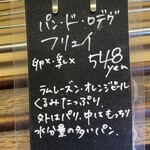 パン・ド・ロデヴ
フリュイ
548
yen
ラムレーズン・オレンジピール
くるみたっぷり
外はパリ、中はもっちり
水分量の多いパン。